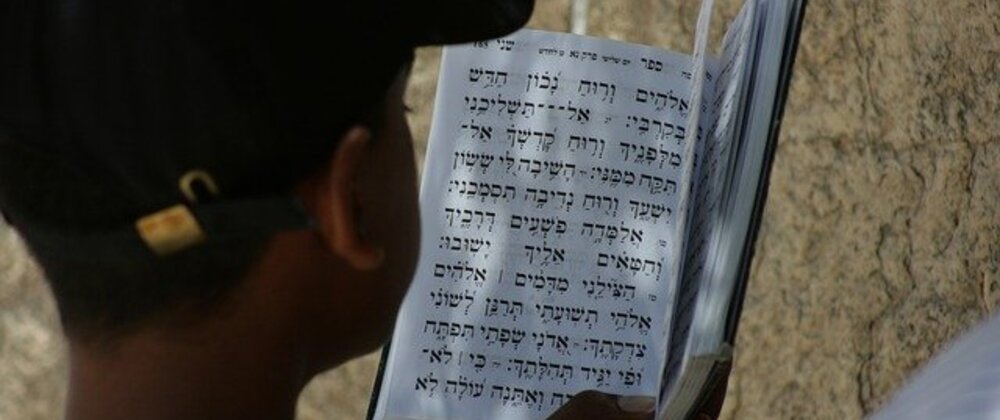 ספר שני 165
אֱלֹהִים וְרוּחַ נָכוֹן חַדֵּשׁ
בְּקִרְבִּי׃ אַל־תַּשְׁלִיכֵנִי
מִלְּפָנֶיךָ וְרוּחַ קָדְשְׁךָ אַל־
תִּקַּח מִמֶּנִּי׃ הָשִׁיבָה לִּי שְׂשׂוֹן
יִשְׁעֶךָ וְרוּחַ נְדִיבָה תִסְמְכֵנִי׃
אֲלַמְּדָה פֹשְׁעִים דְּרָכֶיךָ
וְחַטָּאִים אֵלֶיךָ יָשׁוּבוּ׃
הַצִּילֵנִי מִדָּמִים ׀ אֱלֹהִים
אֱלֹהֵי תְּשׁוּעָתִי תְּרַנֵּן לְשׁוֹנִי
צִדְקָתֶךָ׃ אֲדֹנָי שְׂפָתַי תִּפְתָּח
וּפִי יַגִּיד תְּהִלָּתֶךָ׃ כִּי ׀ לֹא־
וְאֶתֵּנָה עוֹלָה לֹא